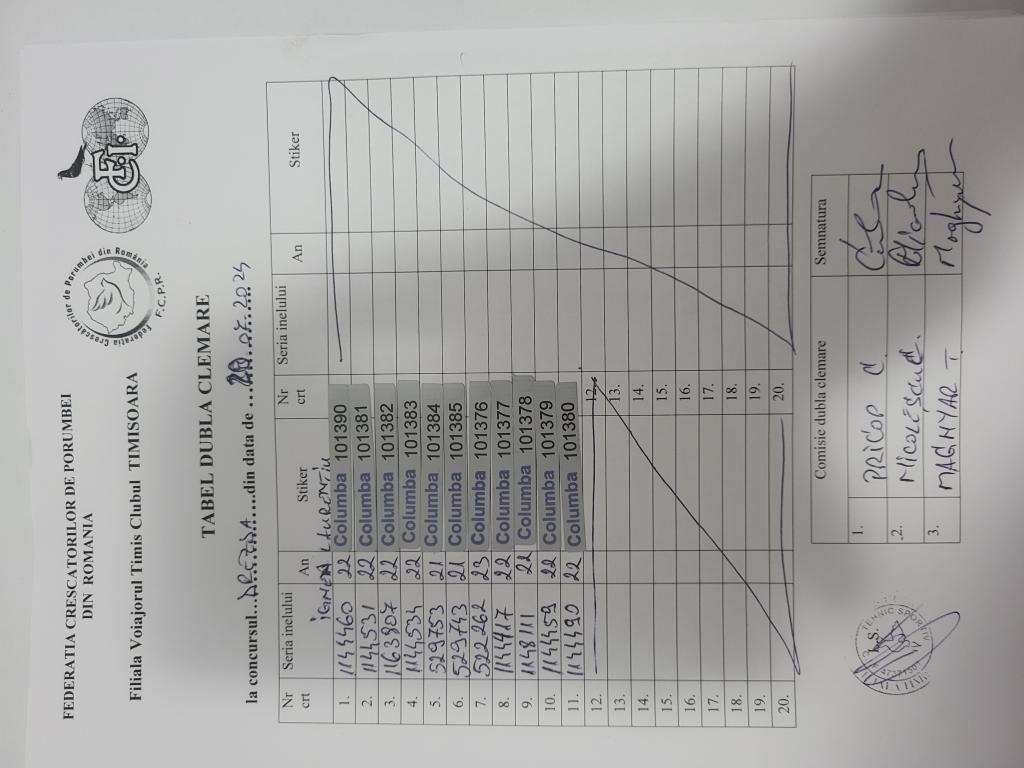 FEDERATIA CRESCATORILOR DE PORUMBEI
DIN ROMANIA
Federatia Crescătorilor de Porumbei din România
F.C.P.R.
Filiala Voiajorul Timis Clubul TIMISOARA
TABEL DUBLA CLEMARE
la concursul...DREJDA....din data de .....07.2024
Nr crt Seria inelului An Stiker Nr crt Seria inelului An Stiker
LAURENTIU
1. 1144460 22 Columba 101390
2. 1144531 22 Columba 101381
3. 1163907 22 Columba 101382
4. 1144534 22 Columba 101383
5. 529753 21 Columba 101384
6. 529743 21 Columba 101385
7. 522262 23 Columba 101376
8. 1144417 22 Columba 101377
9. 1148111 22 Columba 101378
10. 1144459 22 Columba 101379
11. 1144490 22 Columba 101380
12. 12.
13. 13.
14. 14.
15. 15.
16. 16.
17. 17.
18. 18.
19. 19.
20. 20.
Comisie dubla clemare Semnatura
1. PRICOP C
2. NICOLESCU C.
3. MAGHYAR T Maghyar
L.S.
TEHNIC SPORTIV